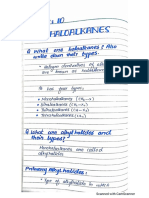 HALOALKANES
Q What are haloalkanes? Also
write down their types.
• Halogen derivatives of
are known as haloalkanes
four types.
• Monohaloalkanes
• Dihaloalkanes
• Trihaloalkanes
• Tetrahaloalkanes
Q What are alkylhalides and
their types?
• Monohaloalkanes are called
alkylhalides.
Primary Alkyl halides:-
• Type of alkylhalide in which
Scanned with CamScanner